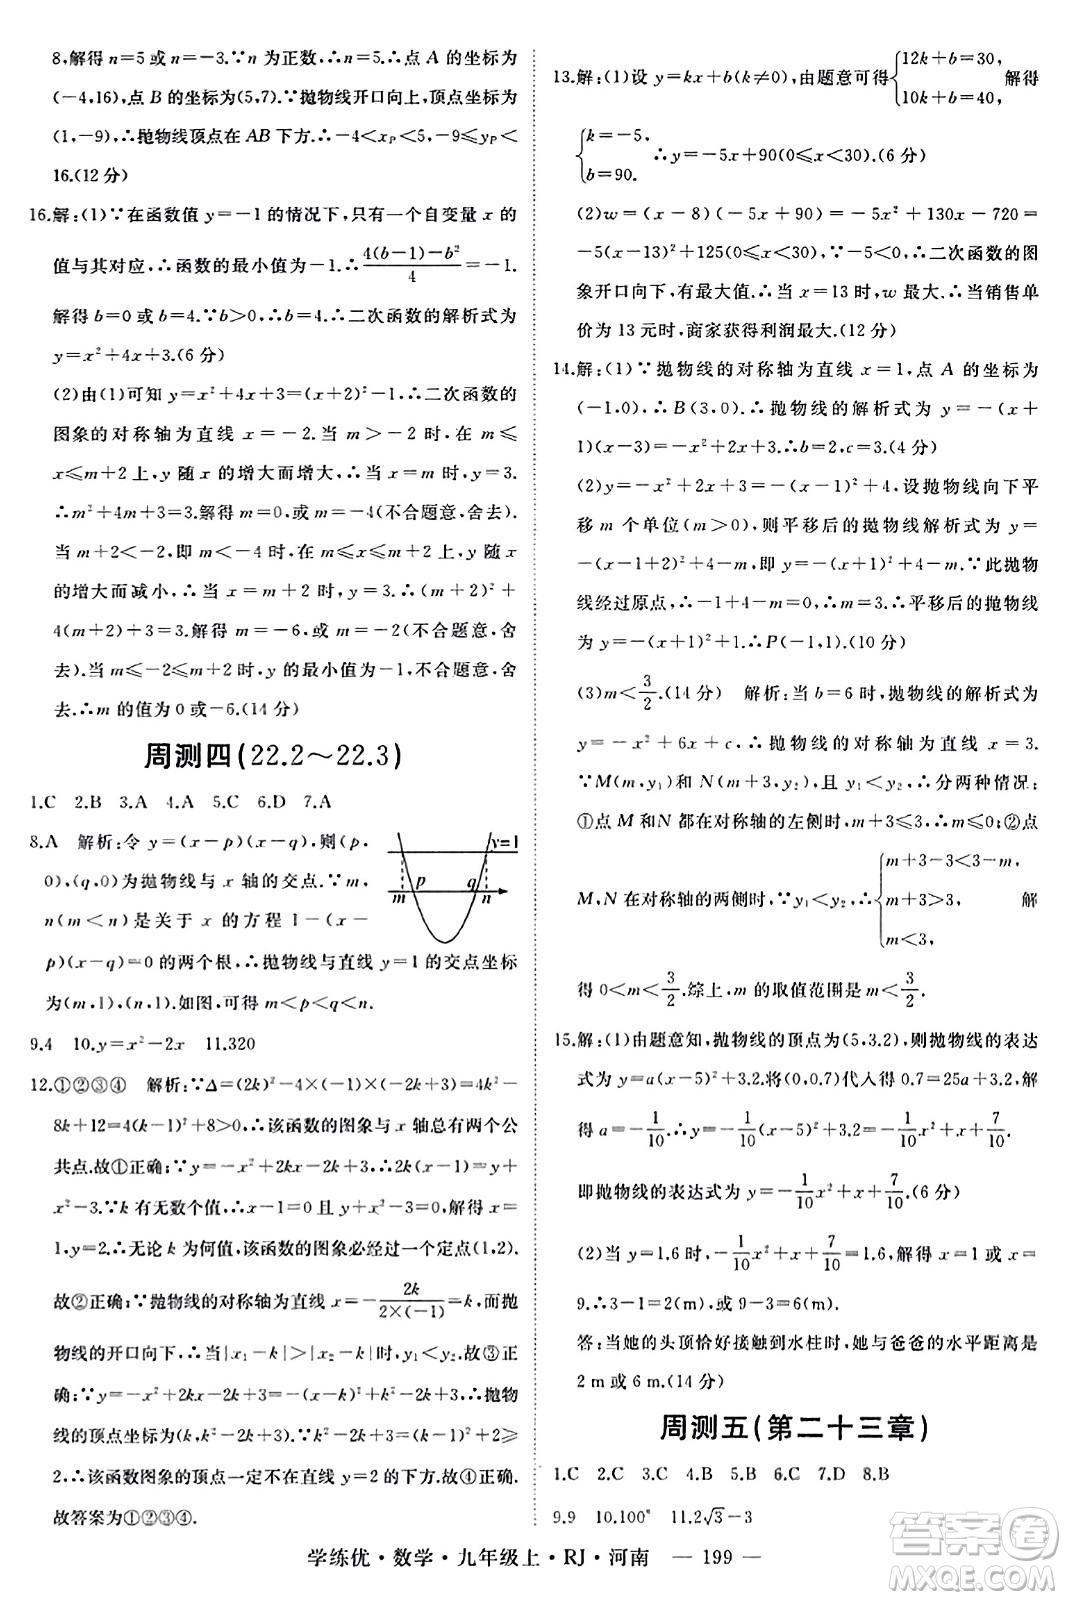 8,解得 n=5 或 n=-3.∵n 为正数,∴n=5.∴点 A 的坐标为
(-4,16),点 B 的坐标为(5,7).∵抛物线开口向上,顶点坐标为
(1,-9),∴抛物线顶点在 AB 下方.∴-4<xₚ<5,-9≤yₚ<
16.(12 分)
16.解:(1)∵在函数值 y=-1 的情况下,只有一个自变量 x 的
值与其对应,∴函数的最小值为-1.∴\frac{4(b-1)-b²}{4}=-1.
解得 b=0 或 b=4.∵b>0,∴b=4.∴二次函数的解析式为
y=x²+4x+3.(6 分)
(2)由(1)可知 y=x²+4x+3=(x+2)²-1,∴二次函数的
图象的对称轴为直线 x=-2.当 m>-2 时,在 m≤
x≤m+2 上,y 随 x 的增大而增大,∴当 x=m 时,y=3.
∴m²+4m+3=3.解得 m=0,或 m=-4(不合题意,舍去).
当 m+2<-2,即 m<-4 时,在 m≤x≤m+2 上,y 随 x
的增大而减小,∴当 x=m+2 时,y=3.∴(m+2)²+
4(m+2)+3=3.解得 m=-6,或 m=-2(不合题意,舍
去).当 m≤-2≤m+2 时,y 的最小值为-1,不合题意,舍
去.∴m 的值为 0 或-6.(14 分)
周测四(22.2～22.3)
1.C 2.B 3.A 4.A 5.C 6.D 7.A
8.A 解析:令 y=(x-p)(x-q),则(p,
0),(q,0)为抛物线与 x 轴的交点.∵m,
n(m<n)是关于 x 的方程 1-(x-
p)(x-q)=0 的两个根,∴抛物线与直线 y=1 的交点坐标
为(m,1),(n,1).如图,可得 m<p<q<n.
y=1
m p q n
9.4 10.y=x²-2x 11.320
12.①②③④ 解析:∵Δ=(2k)²-4×(-1)×(-2k+3)=4k²-
8k+12=4(k-1)²+8>0,∴该函数的图象与 x 轴有两个公
共点.故①正确;∵y=-x²+2kx-2k+3,∴2k(x-1)=y+
x²-3.∵k 有无数个值,∴x-1=0,y+x²-3=0.解得 x=
1,y=2.∴无论 k 为何值,该函数的图象必经过一个定点(1,2).
故②正确;∵抛物线的对称轴为直线 x=-\frac{2k}{2×(-1)}=k,而抛
物线的开口向下,∴当|x₁-k|>|x₂-k|时,y₁<y₂.故③正
确;∵y=-x²+2kx-2k+3=-(x-k)²+k²-2k+3,∴抛物
线的顶点坐标为(k,k²-2k+3).∵k²-2k+3=(k-1)²+2≥
2,∴该函数图象的顶点一定不在直线 y=2 的下方.故④正确.
故答案为①②③④.
13.解:(1)设 y=kx+b(k≠0),由题意可得{12k+b=30, 10k+b=40, 解得
{k=-5, b=90. ∴y=-5x+90(0≤x<30).(6 分)
(2)w=(x-8)(-5x+90)=-5x²+130x-720=
-5(x-13)²+125(0≤x<30).∵-5<0,∴二次函数的图
象开口向下,有最大值.∴当 x=13 时,w 最大.∴当销售单
价为 13 元时,商家获得利润最大.(12 分)
14.解:(1)∵抛物线的对称轴为直线 x=1,点 A 的坐标为
(-1,0),∴B(3,0).∴抛物线的解析式为 y=-(x+
1)(x-3)=-x²+2x+3.∴b=2,c=3.(4 分)
(2)y=-x²+2x+3=-(x-1)²+4,设抛物线向下平
移 m 个单位(m>0),则平移后的抛物线解析式为 y=
-(x-1)²+4-m,则 P(1-m,1).∵此抛物
线经过原点,∴-1+4-m=0.∴m=3.∴平移后的抛物线
为 y=-(x-1)²+1.∴P(-1,1).(10 分)
(3)m<\frac{3}{2}.(14 分) 解析:当 b=6 时,抛物线的解析式为
y=-x²+6x+c,∴抛物线的对称轴为直线 x=3.
∵M(m,y₁)和 N(m+3,y₂),y₁<y₂,∴分两种情况:
①点 M 和 N 都在对称轴的左侧时,m+3≤3,∴m≤0;②点
M,N 在对称轴的两侧时,∵y₁<y₂,∴{m+3-3<3-m, m+3>3, m<3, 解
得 0<m<\frac{3}{2}.综上,m 的取值范围是 m<\frac{3}{2}.
15.解:(1)由题意知,抛物线的顶点为(5,3.2),则抛物线的表达
式为 y=a(x-5)²+3.2.将(0,0.7)代入得 0.7=25a+3.2,解
得 a=-\frac{1}{10}.∴y=-\frac{1}{10}(x-5)²+3.2=-\frac{1}{10}x²+x+\frac{7}{10},
即抛物线的表达式为 y=-\frac{1}{10}x²+x+\frac{7}{10}.(6 分)
(2)当 y=1.6 时,-\frac{1}{10}x²+x+\frac{7}{10}=1.6,解得 x=1 或 x=
9.∴3-1=2(m),或 9-3=6(m).
答:当她的头顶恰好接触到水柱时,她与爸爸的水平距离是
2 m 或 6 m.(14 分)
周测五(第二十三章)
1.C 2.C 3.C 4.B 5.B 6.C 7.D 8.B
9.9 10.100° 11.2√3-3
学练优·数学·九年级上·RJ·河南 — 199 —
答案圈
MXQE.COM